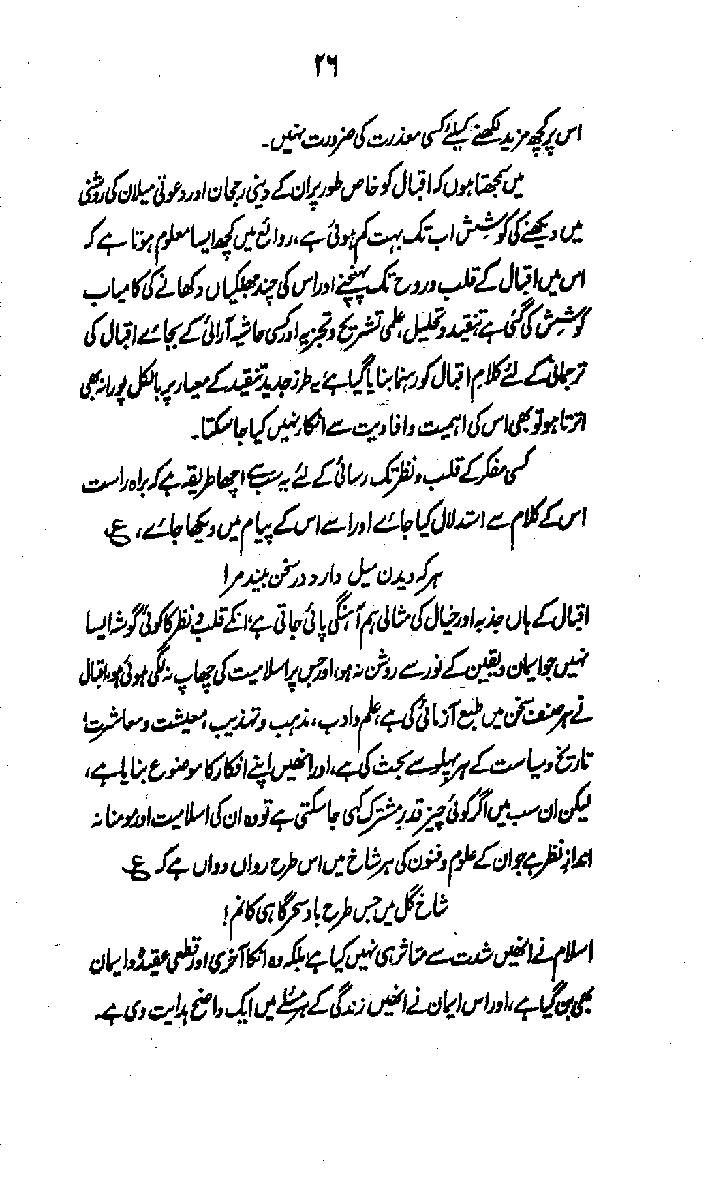 ۲۶
اس پر کچھ مزید لکھنے کیلئے کسی معذرت کی ضرورت نہیں۔
میں سمجھتا ہوں کہ اقبال کو خاص طور پر ان کے دینی رجحان اور دعوتی میلان کی روشنی
میں دیکھنے کی کوشش اب تک بہت کم ہوئی ہے، روائع میں کچھ ایسا معلوم ہوتا ہے کہ
اس میں اقبال کے قلب و روح تک پہنچنے اور اس کی چند جھلکیاں دکھانے کی کامیاب
کوشش کی گئی ہے تنقید و تحلیل، علمی تشریح و تجزیہ اور کسی حاشیہ آرائی کے بجائے اقبال کی
ترجمانی کے لئے کلام اقبال کو رہنما بنایا گیا ہے، یہ طرز جدید تنقید کے معیار پر بالکل پورا نہ بھی
اترتا ہو تو بھی اس کی اہمیت و افادیت سے انکار نہیں کیا جا سکتا۔
کسی مفکر کے قلب و نظر تک رسائی کے لئے یہ سب سے اچھا طریقہ ہے کہ براہ راست
اس کے کلام سے استدلال کیا جائے اور اسے اس کے پیام میں دیکھا جائے، ع
ہر کہ دیدن میل دارد در سخن بیند مرا
اقبال کے ہاں جذبہ اور خیال کی مثالی ہم آہنگی پائی جاتی ہے، انکے قلب و نظر کا کوئی گوشا ایسا
نہیں جو ایمان و یقین کے نور سے روشن نہ ہو، اور جس پر اسلامیت کی چھاپ نہ لگی ہوئی ہو، اقبال
نے ہر صنف سخن میں طبع آزمائی کی ہے، علم و ادب، مذہب و تہذیب، معیشت و معاشرت
تاریخ و سیاست کے ہر پہلو سے بحث کی ہے، اور انھیں اپنے افکار کا موضوع بنایا ہے،
لیکن ان سب میں اگر کوئی چیز قدر مشترک کہی جا سکتی ہے تو وہ ان کی اسلامیت اور مومنانہ
انداز نظر ہے جو ان کے علوم و فنون کی ہر شاخ میں اس طرح رواں دواں ہے کہ ع
شاخ گل میں جس طرح باد سحر گاہی کا نم!
اسلام نے انھیں شدت سے متاثر ہی نہیں کیا ہے بلکہ وہ انکا آخری اور قطعی عقیدہ و ایمان
بھی بن گیا ہے، اور اس ایمان نے انھیں زندگی کے ہر مسئلے میں ایک واضح ہدایت دی ہے۔